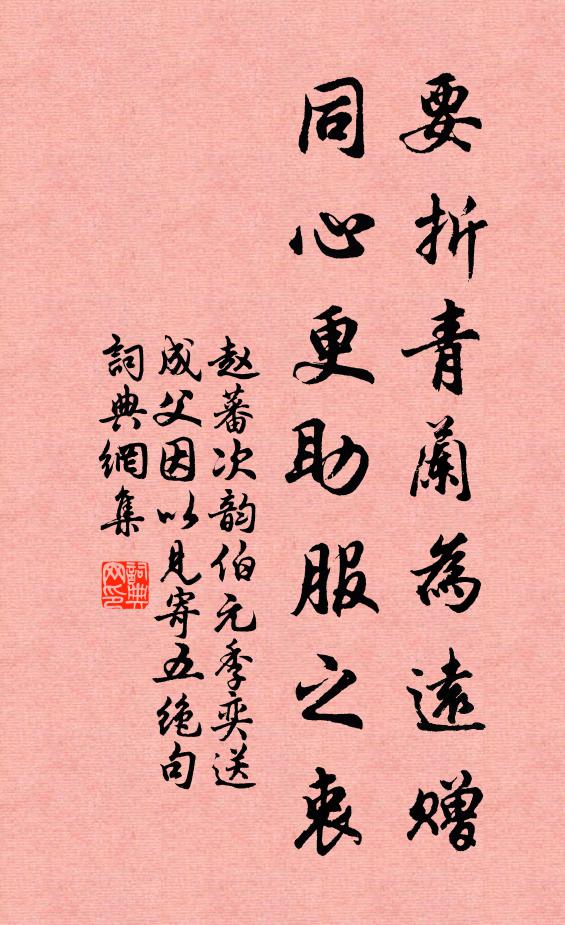 要折青蘭為遠贈
同心更助服之衷
赵蕃次韵伯元季奕送
成父因以见寄五绝句
詞典網集
詞典
网印